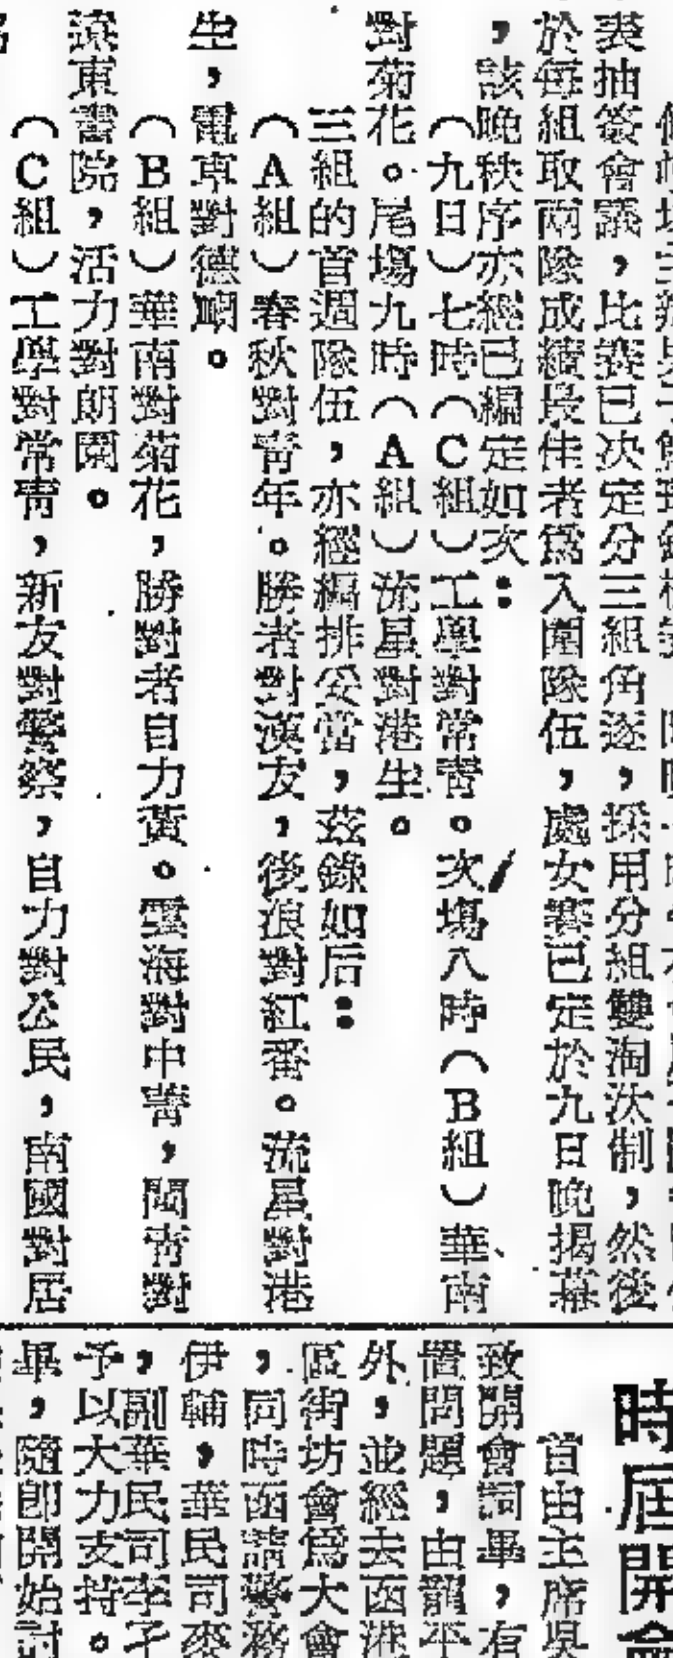 表抽簽會議,比賽已決定分三組角逐,採用分組雙淘汰制,然後
於每組取兩隊成績最佳者爲入圍隊伍,處女賽已定於九日晚揭幕
,該晚秩序亦經已編定如次:
(九日)七時(C組)工學對常青。次場八時(B組)華南
對菊花。尾場九時(A組)流星對港生。
三組的首週隊伍,亦經編排妥當,茲錄如后:
(A組)春秋對青年。勝者對漢友,後浪對紅番。流星對港
生,電車對德明。
(B組)華南對菊花,勝對者自力黃。雲海對中青,閩青對
遠東書院,活力對朗園。
(C組)工學對常青,新友對警察,自力對公民,南國對居
時屆開會
首由主席吳
致開會詞畢,有
置問題,由龍平
外,並經去函港
區街坊會爲大會
,同時函請警務
伊輔,華民司麥
,副華民司李孑
予以大力支持。
畢,隨卽開始討